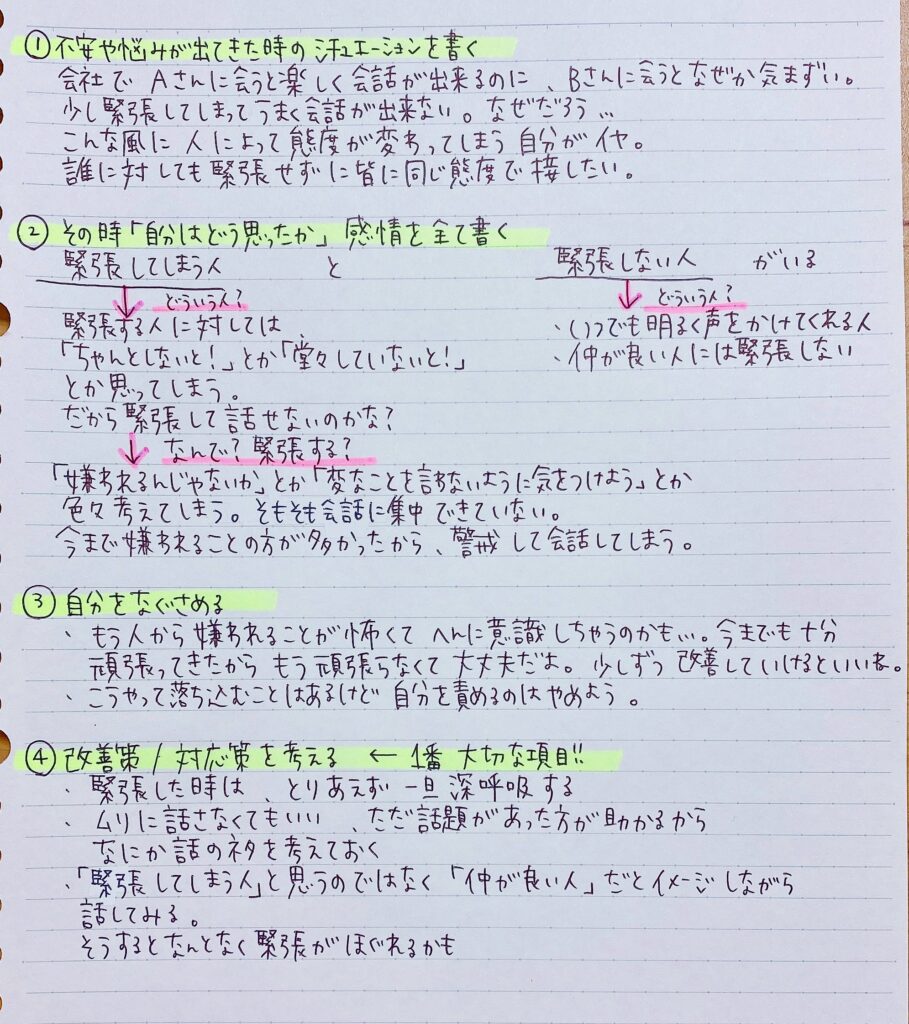 ① 不安や悩みが出てきた時の シチュエーションを書く
会社で Aさんに会うと楽しく会話が出来るのに、Bさんに会うとなぜか気まずい。
少し緊張してしまってうまく会話が出来ない。なぜだろう…
こんな風に 人によって態度が変わってしまう 自分がイヤ。
誰に対しても緊張せずに皆に同じ態度で接したい。
② その時「自分はどう思ったか」感情を全て書く
緊張してしまう人 と 緊張しない人 がいる
どういう人? どういう人?
緊張する人に対しては、
「ちゃんとしないと!」とか「堂々していないと!」
とか思ってしまう。
だから緊張して話せないのかな?
・いつでも明るく声をかけてくれる人
・仲が良い人には緊張しない
なんで?緊張する?
「嫌われるんじゃないか」とか「変なことを言わないように気をつけよう」とか
色々考えてしまう。そもそも会話に集中できていない。
今まで嫌われることの方が多かったから、警戒して会話してしまう。
③ 自分をなぐさめる
・もう人から嫌われることが怖くて へんに意識しちゃうのかも…。今までも十分
頑張ってきたから もう頑張らなくて大丈夫だよ。少しずつ改善していけるといいね。
・こうやって落ち込むことはあるけど 自分を責めるのはやめよう。
④ 改善策/対応策を考える ← 1番 大切な項目!!
・緊張した時は、とりあえず一旦深呼吸する
・ムリに話さなくてもいい、ただ話題があった方が助かるから
なにか話のネタを考えておく
・「緊張してしまう人」と思うのではなく「仲が良い人」だとイメージしながら
話してみる。
そうするとなんとなく緊張がほぐれるかも